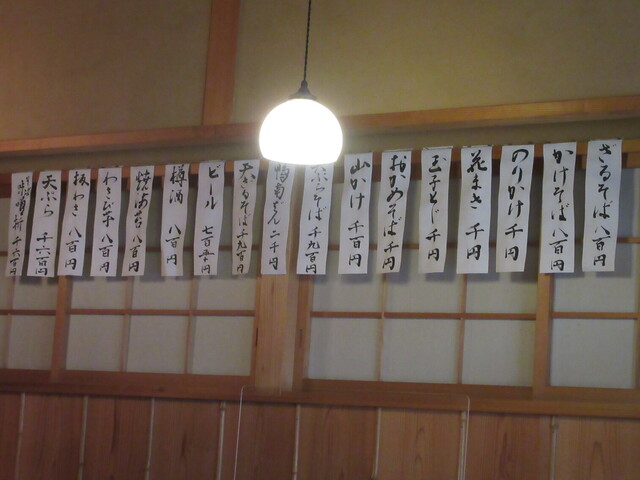 ざるそば 八百円
かけそば 八百円
のりかけ 千円
花まき 千円
玉子とじ 千円
おかめそば 千円
山かけ 千百円
そば 千九百円
鴨南ばん 二千円
天ざるそば 千九百円
ビール 七百五十円
樽酒 八百円
焼海苔 八百円
わさび芋 八百円
板わさ 八百円
天ぷら 千六百円
千六百円